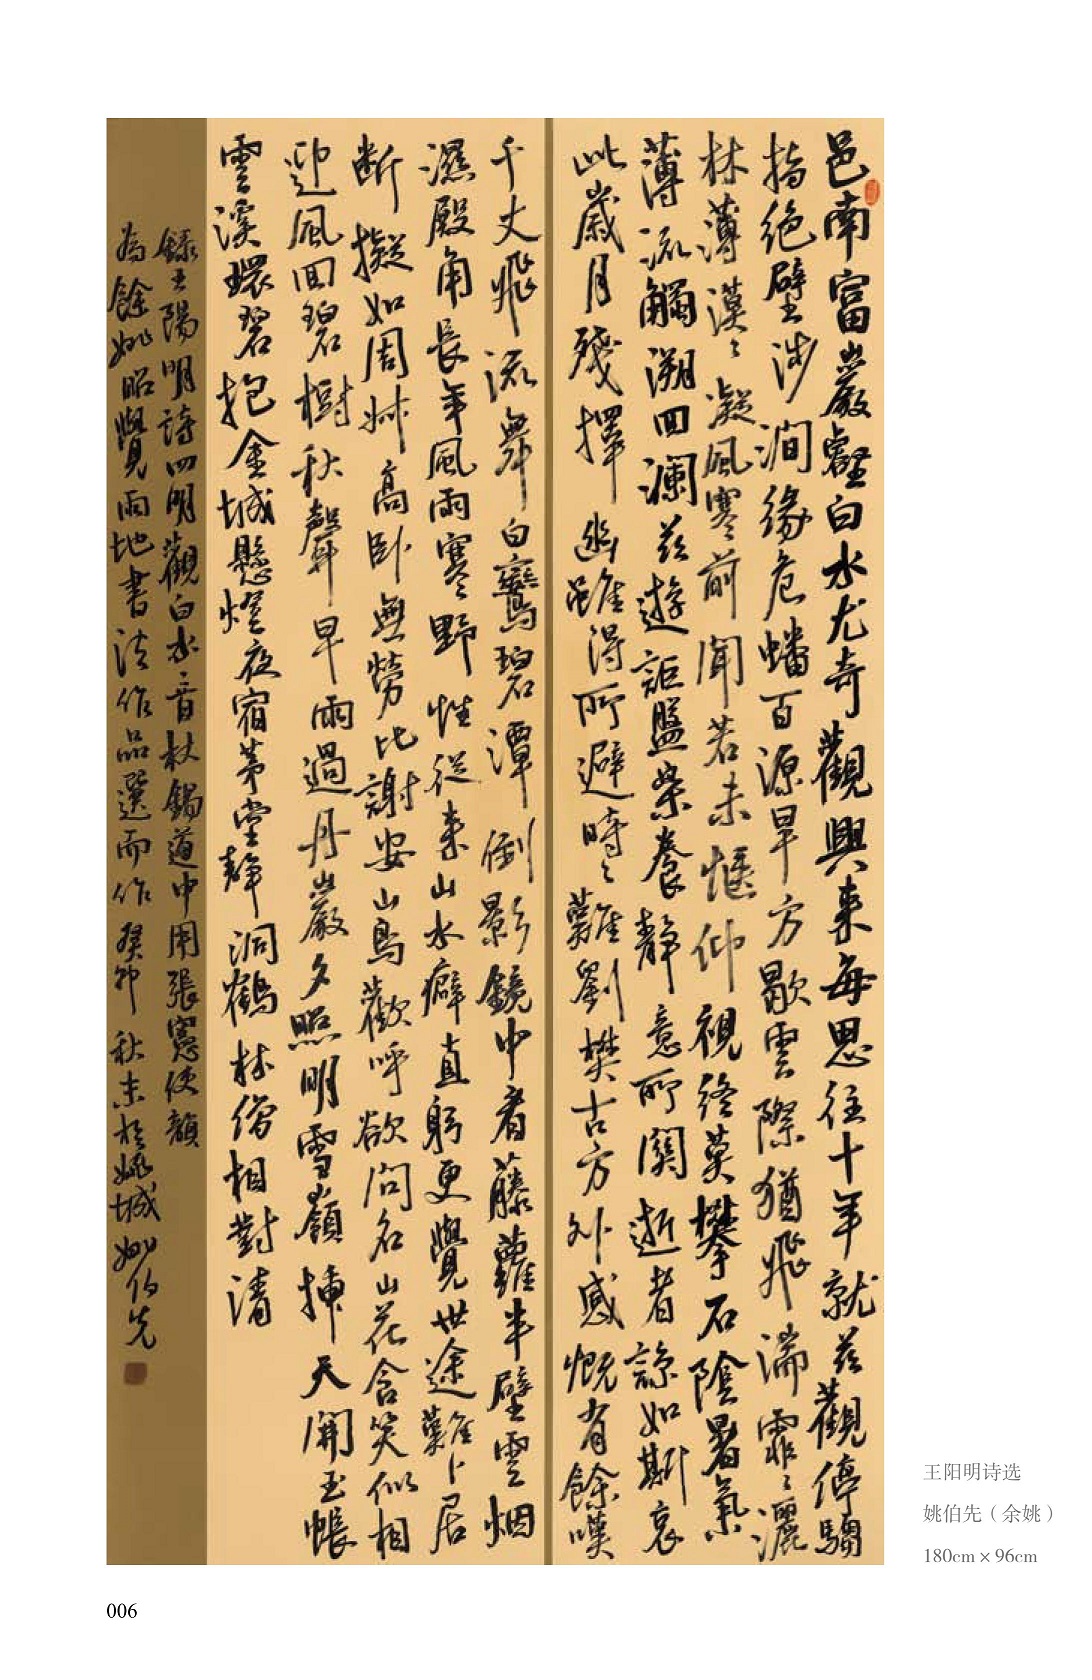 邑南富巖壑白水尤奇觀興来每思往十年就兹觀停驂
指绝壁涉澗緣危蟠百源旱方歇雲際猶飛湍霏〻灑
林薄漠〻凝風寒前聞若未愜仰視终莫攀石陰暑氣
薄流觸溯回瀾兹遊詎盤樂養靜意所關逝者諒如斯哀
此歲月殘擇幽雖得所避時〻難劉樊古方外感慨有餘嘆
千丈飛流舞白鸞碧潭倒影鏡中看藤蘿半壁雲烟
濕殿角長年風雨寒野性從来山水癖直躬更覺世途難卜居
断擬如周叔高卧無勞比謝安山鳥歡呼欲問名山花含笑似相
迎風回碧樹秋聲早雨過丹巖夕照明雪嶺插天開玉帳
雲溪環碧抱金城懸燈夜宿茅堂靜洞鶴林僧相對清
錄王陽明詩四明觀白水二首杖錫道中用張憲使韻
為餘姚昭覺雨地書法作品選而作癸卯秋末於姚城姚伯先
王阳明诗选
姚伯先（余姚）
180cm × 96cm
006